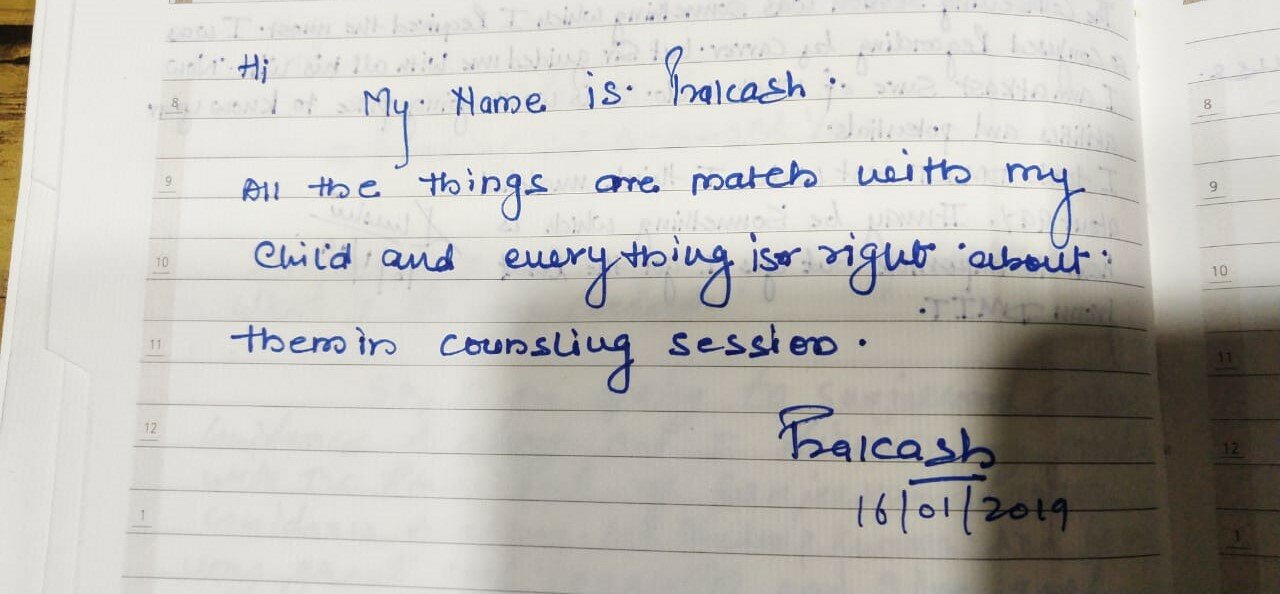 Hi
My Name is Prakash.
All the things are match with my
Child and everything is right about
them in counsling session.
Prakash
16/01/2019
8
9
10
11
12
1
8
9
10
11
12
1